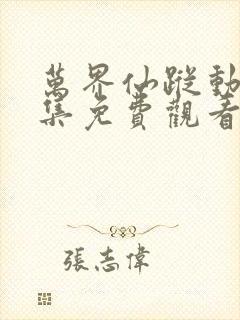 萬界仙蹤動
集免費觀看
張志偉